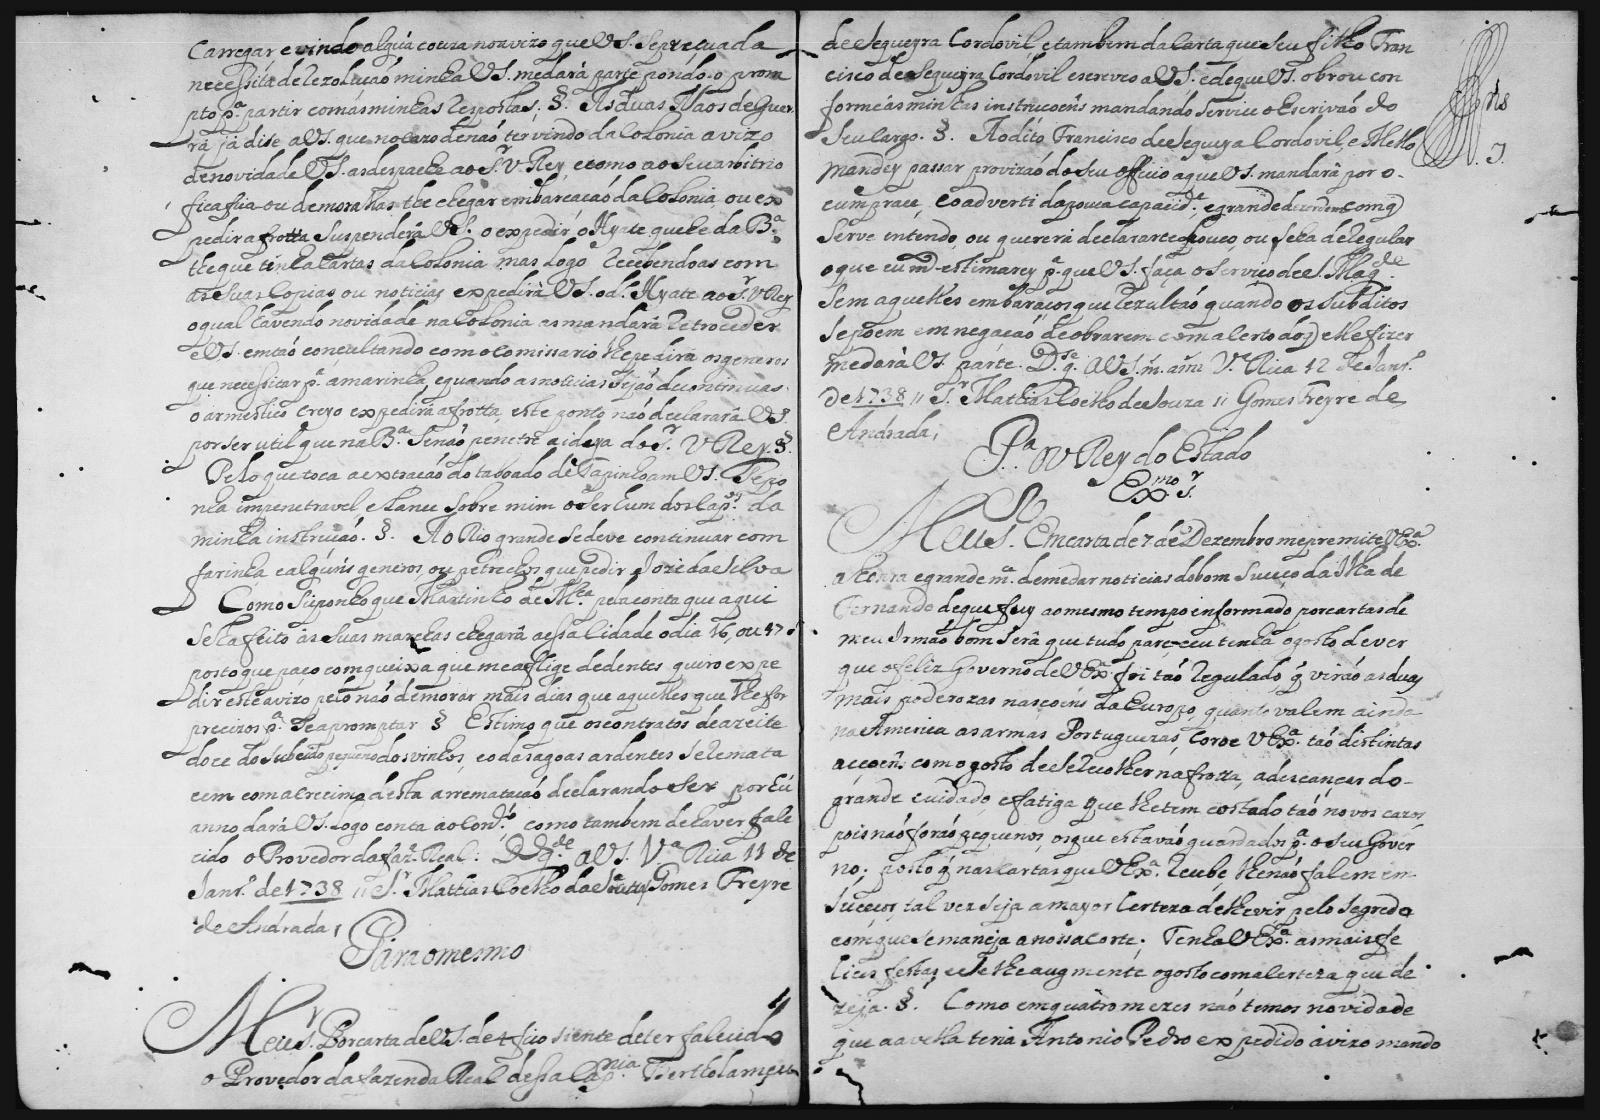 Carregar e vindo algũa couza no avizo que VS. Seprecuada
necessita de rezolucaó minha VS. medará parte pondo o prom
pto pª partir com as minhas respostas; §. As duas Náos de Guer
ra já dise a VS. que no cazo de naó ter vindo da Colonia avizo
de novidade VS. as despache ao Sr. V Rey, e como ao seu arbitrio
fica hia ou demora the chegar embarcacaó da Colonia ou ex
pedir a frotta suspenderá VS. o expedir o Hyate que he da Bª
the que tenha Cartas da Colonia, mas logo recebendoas com
as suas Copias ou noticias expedirá VS. o d.º Hyate ao Sr. V Rey
o qual havendo novidade na Colonia as mandará retroceder
e VS. emtaó concultando com o Comissario lhe pedirá os generos
que necessitar pª a marinha, e quando as noticias sejaó de continuar
o armesticio creyo expedirá a frotta, este ponto naó declarará VS.
por ser util que na Bª Senaó penetre a ideya do Sr. V Rey. §.
Pelo que toca a extracaó do taboado de Tapinhoam VS. Sepo
nha impenetravel, e lance sobre mim o ser hum dos Cap.os da
minha instrucaó. §. Ao Rio grande se deve continuar com
farinha e algúns generos, ou petrechos que pedir Joze da Silva
Como supponho que Martinho de M.ca pela conta que aqui
se ha feito as suas marchas chegará a essa Cidade o dia 16, ou 17
posto que paco com queixa que me aflige de dentes, quiro expe
dir este avizo pelo naó demorar mais dias que aquelles que lhe for
precizos pª se apromptar § Estimo que os contratos de azeite
doce do Subcidio pequeno dos vinhos, e o das agoas ardentes se remata
cem com acrecimo desta arremataçaó declarando ser por hú
anno dará VS. logo conta ao Cons.º como tambem de haver fale
cido o Provedor da faz.ª Real: D.s g.de a VS. Vª Rica 11 de
Janr.º de 1738 // Sr. Mathias Coelho da Souza // Gomes Freyre
de Andrada,
Para o mesmo
Meu Sr. Por carta de VS. de 4 fico siente de ter falecido
o Provedor da fazenda Real dessa Capnia Bertholameu
de Sequeyra Cordovil, e tambem da Carta que seu filho Fran
cisco de Sequeyra Cordovil escreveo a VS. e de que VS. obrou con
forme ás minhas instrucoéns mandando Servir o Escrivaó do
Seu cargo. §. Ao dito Francisco de Sequeyra Cordovil, e Mello
mandey passar provizaó do seu officio a que VS. mandará por o-
cumprace, e o adverti da pouca capacide, e grande com q
serve intendo, ou quererá declararte pouco, ou seha de regular
o que eu md estimarey pª que VS. faça o Servico de S. Magde
sem aquelles embaraços que rezultaó quando os Subditos
se poem em negacaó de obrarem com acerto do q e lhe fizer
me dará VS. parte. D.s g.de a VS. m. añs Vª Rica 12 de Janr.º
de 1738 // Sr. Mathias Coelho de Souza // Gomes Freyre de
Andrada,
Pª o V Rey do Estado
Exmo Sr.
Meu Sr. Em carta de 7 de Dezembro me premite VExª
a honra e grande m.ce de me dar noticias do bom suceço da Ilha de
Fernando de que fuy ao mesmo tempo informado por cartas de
meu Irmaó bom será que tudo pareceu tenha o gosto de ver
que o feliz Governo de VExª foi taó regulado, q viraó as duas
mais poderozas nascoéns da Europa, quanto valem ainda
na America as armas Portuguezas, Coroe VExª. taó distintas
accoéñs com o gosto de se recolher na frotta, a descançar do-
grande cuidado, e fatiga que lhe tem costado taó novos cazos
pois naó foraó pequenos, os que estavaó guardados pª o seu Gover
no; posto q nas cartas que VExª. recube, lhe naó falem em
suceçor, tal vez seja a mayor certeza de lhe vir pelo segredo
com que se maneja a nossa corte. Tenha VExª as mais fe
lices festas, e se lhe augmente o gosto com a certeza que de
zeja. §. Como em quatro mezes naó temos novidade
que a avella teria Antonio Pedro expedido avizo mando